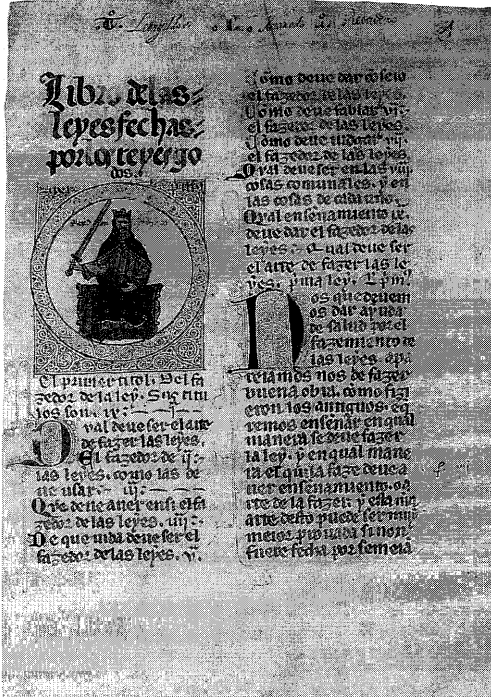 Libro de las
leyes fechas
por q̃ reyes go
dos.
El primer titol. Del fa
zedor de la ley. Sus titu
los son. ix.
Qval deue ser el arte
de fazer las leyes.
El fazedor de ij:
las leyes. como las de
ue usar. iij:
Qve deue auer en si el fa
zedor de las leyes. iiij:
De que uida deue ser el
fazedor de las leyes. v.
Cómo deue dar coseio
el fazedor de las leyes.
Cómo deue fablar vij:
el fazedor de las leyes.
Cómo deue iudgar
el fazedor de las leyes.
Qval deue ser en las viij
cosas comunales. y en
las cosas de cada uno.
Qval enseñamiento ix.
deue dar el fazedor de las
leyes. Qual deue ser
el arte de fazer las le
yes. p̃ma ley. T. pm̃.
Nos que deuem
os dar ayuda
de salud por el
fazemiento de
las leyes. apa
reiamos nos de fazer
buena obra. como fizi
eron los antiguos. eq̃
remos enseñar en qual
manera se deue fazer
la ley. y en qual mane
ra el qui la faze deue a
uer enseñamiento. oa
rte de la fazer. y esta
arte desto puede ser mui
meior prouada si non
fuere fecha por semeia